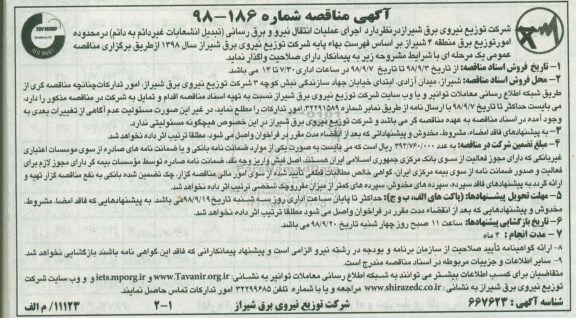 آگهی مناقصه شماره ۱۸۶-۹۸
شرکت توزیع نیروی برق شیراز در نظر دارد اجرای عملیات انتقال نیرو و برق رسانی (تبدیل انشعابات غیردائم به دائم) در محدوده
امور توزیع برق منطقه ۴ شیراز بر اساس فهرست بهاء پایه شرکت توزیع نیروی برق شیراز سال ۱۳۹۸ از طریق برگزاری مناقصه
عمومی یک مرحله ای با شرایط مشروحه زیر به پیمانکار دارای صلاحیت واگذار نماید.
۱- تاریخ فروش اسناد مناقصه: از تاریخ ۹۸/۹/۳ تا تاریخ ۹۸/۹/۷ در ساعات اداری ۷/۳۰ تا ۱۳ می باشد.
۲- محل فروش اسناد مناقصه: شیراز، میدان آزادی، ابتدای خیابان جهاد سازندگی نبش کوچه ۳ شرکت توزیع نیروی برق شیراز، امور تدارکات چنانچه مناقصه گری از
طریق شبکه اطلاع رسانی معاملات توانیر و یا وب سایت شرکت توزیع نیروی برق شیراز نسبت به تهیه اسناد مناقصه اقدام و تمایل به شرکت در مناقصه مذکور را دارد،
می بایست حداکثر تا تاریخ ۹۸/۹/۷ با ارسال نامه از طریق نمابر شماره ۳۲۲۹۱۵۸۹ امور تدارکات را مطلع نماید، در غیر این صورت مسئولیت عدم آگاهی از تغییرات بعدی به
وجود آمده در اسناد مناقصه به عهده مناقصه گر می باشد و شرکت توزیع نیروی برق شیراز در این خصوص هیچگونه مسئولیتی ندارد.
۳- به پیشنهادهای فاقد امضاء، مشروط، مخدوش و پیشنهاداتی که بعد از انقضاء مدت مقرر در فراخوان واصل می شود، مطلقا ترتیب اثر داده نخواهد شد.
۴- مبلغ تضمین شرکت در مناقصه: به عدد ۳۹۴/۷۶۰/۰۰۰ ریال است که می بایست به صورت یکی از موارد ضمانت نامه بانکی و یا ضمانت نامه های صادره از سوی موسسات اعتباری
غیربانکی که دارای مجوز فعالیت از سوی بانک مرکزی جمهوری اسلامی ایران هستند، اصل فیش واریز وجه نقد، ضمانت نامه صادره توسط مؤسسات بیمه گر دارای مجوز لازم برای
فعالیت و صدور ضمانت نامه از سوی بیمه مرکزی ایران، گواهی خالص مطالبات قطعی تأیید شده از سوی امور مالی مناقصه گزار، چک تضمین شده بانکی به نفع مناقصه گزار تهیه و
ارائه گردد به پیشنهادهای فاقد سپرده، سپرده های مخدوش، سپرده های کمتر از میزان مقرر و چک شخصی ترتیب اثر داده نخواهد شد.
۵- مهلت تحویل پیشنهادها: (پاکت های الف، ب و ج): حداکثر تا پایان ساعت اداری روز سه شنبه تاریخ ۹۸/۹/۱۹ می باشد. به پیشنهادهایی که فاقد امضا، مشروط،
مخدوش و پیشنهادهایی که بعد از انقضاء مدت مقرر در فراخوان واصل می شود مطلقا ترتیب اثر داده نخواهد شد.
۶- تاریخ بازگشایی پیشنهادها: ساعت ۱۱ صبح روز چهار شنبه تاریخ ۹۸/۹/۲۰ می باشد.
۷- مدت انجام: ۴ ماه
۸- ارائه گواهینامه تأیید صلاحیت از سازمان برنامه و بودجه در رشته نیرو الزامی است و پیشنهاد پیمانکارانی که فاقد این گواهی نامه باشند بازگشایی نخواهد شد.
۹- سایر اطلاعات و جزییات مربوطه در اسناد مناقصه مندرج است.
متقاضیان برای کسب اطلاعات بیشتر می توانند به شبکه اطلاع رسانی معاملات توانیر به نشانی: www.Tavanir.org.ir و iets.mporg.ir و وب سایت شرکت
توزیع برق شیراز به نشانی: www.shirazedc.co.ir مراجعه و یا با شماره تلفن ۳۲۲۹۹۶۸۵ امور تدارکات تماس حاصل نمایند.
شناسه آگهی: ۶۶۷۶۲۳ شرکت توزیع نیروی برق شیراز ۲-۱ ۱۱۱۲۳/م الف